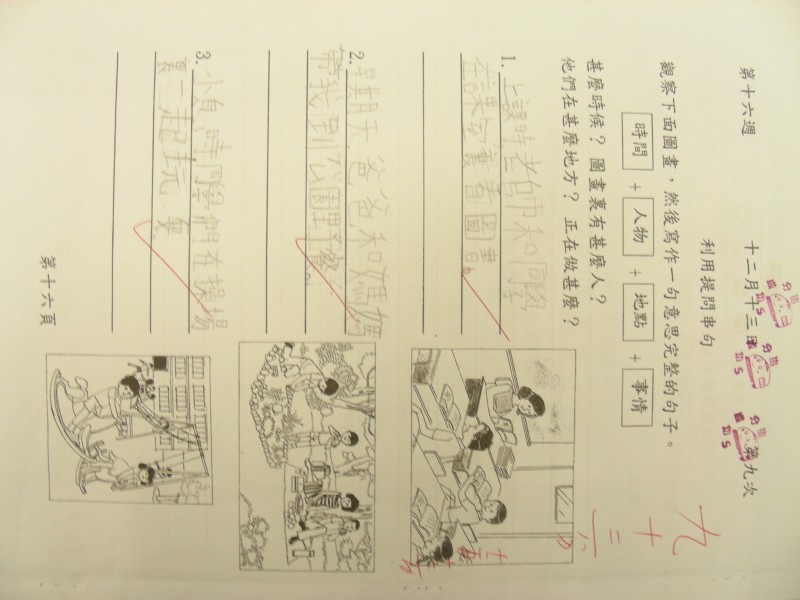 第十六週 十二月十三日 第九次
利用提問串句
觀察下面圖畫，然後寫作一句意思完整的句子。
時間 + 人物 + 地點 + 事情
甚麼時候？ 圖畫裏有甚麼人？
他們在甚麼地方？ 正在做甚麼？
1. 上課時老師和同學
在課室裏看圖書。
2. 星期天，爸爸和媽媽
帶我到公園野餐。
3. 小息時同學們在操場
裏一起玩
九十二
第十六頁